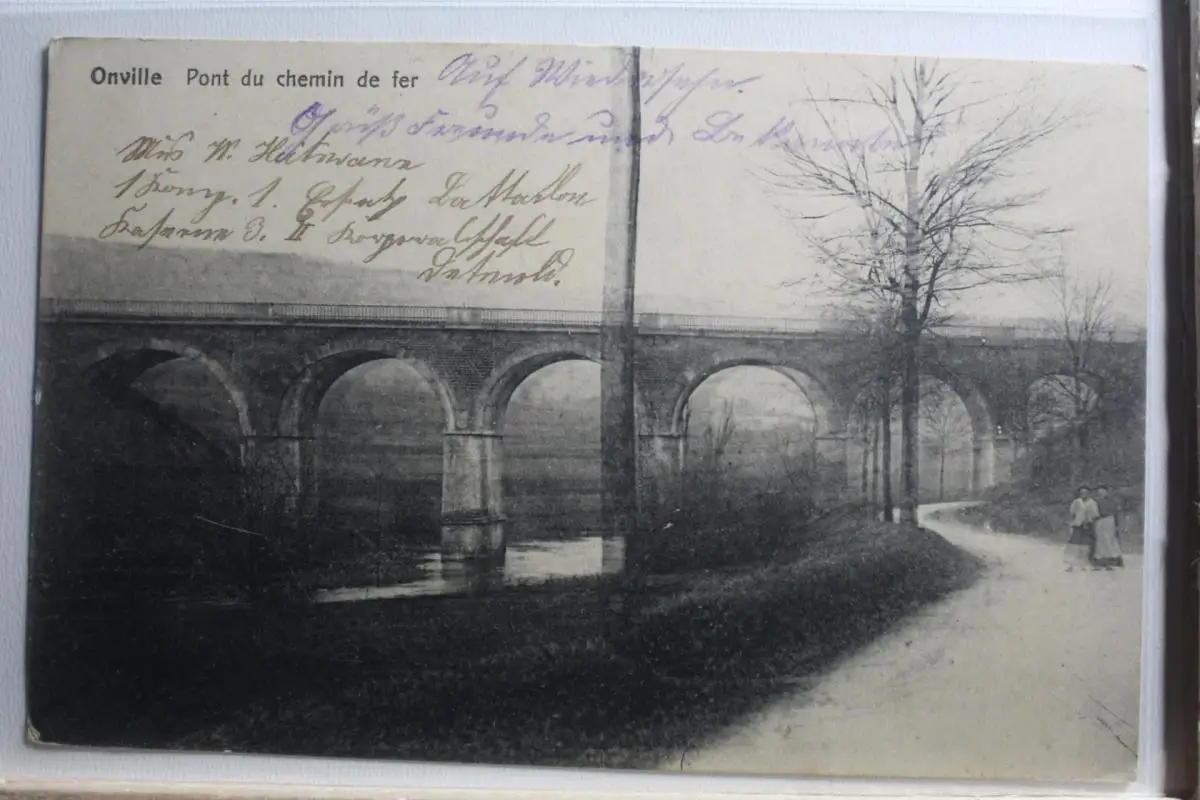 Onville Pont du chemin de fer
Auf Wiedersehn.
Grüß Freunde und Bekannte
Mus W.
1 Komp. 1. Ersatz Battailon
Kaserne 3. II Korperalschaft
Detmold.